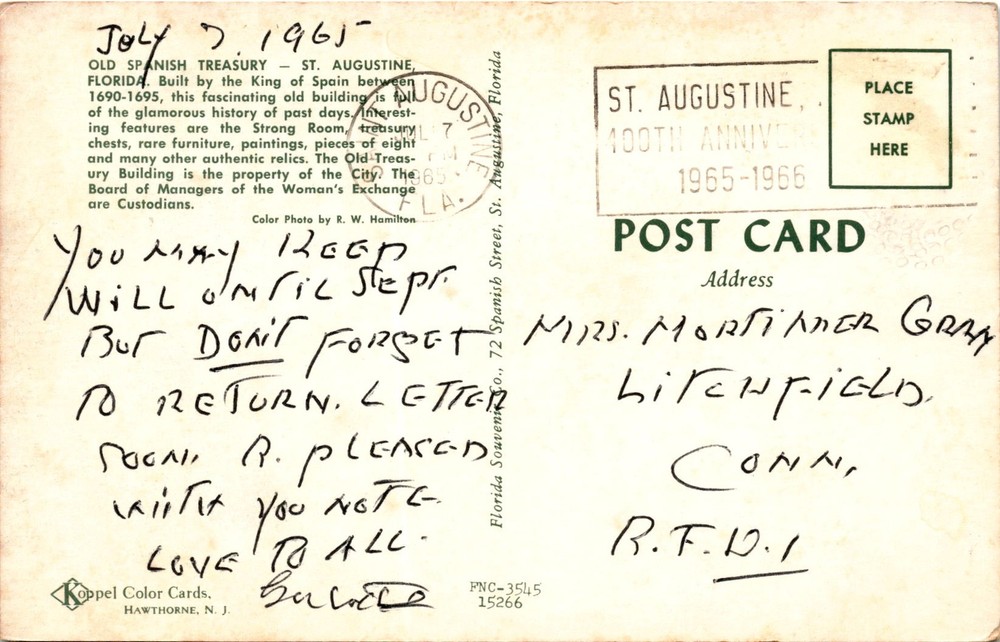 July 7. 1965
OLD SPANISH TREASURY — ST. AUGUSTINE,
FLORIDA. Built by the King of Spain between
1690-1695, this fascinating old building is full
of the glamorous history of past days. Interest-
ing features are the Strong Room, treasury
chests, rare furniture, paintings, pieces of eight
and many other authentic relics. The Old Treas-
ury Building is the property of the City. The
Board of Managers of the Woman's Exchange
are Custodians.
Color Photo by R. W. Hamilton
YOU MAY KEEP
WILL UNTIL SEPT.
BUT DON'T FORGET
TO RETURN. LETTER
SOON. R. PLEASED
WITH YOU NOTE.
LOVE TO ALL.
Koppel Color Cards.
HAWTHORNE, N. J.
Florida Souvenir Co., 72 Spanish Street, St. Augustine, Florida
FNC-3545
15266
SAINT AUGUSTINE
JUL 7
PM
1965
FLA.
ST. AUGUSTINE,
400TH ANNIVE
1965-1966
PLACE
STAMP
HERE
POST CARD
Address
MRS. MORTIMER GRAY
LITCHFIELD.
CONN,
R.F.D.1